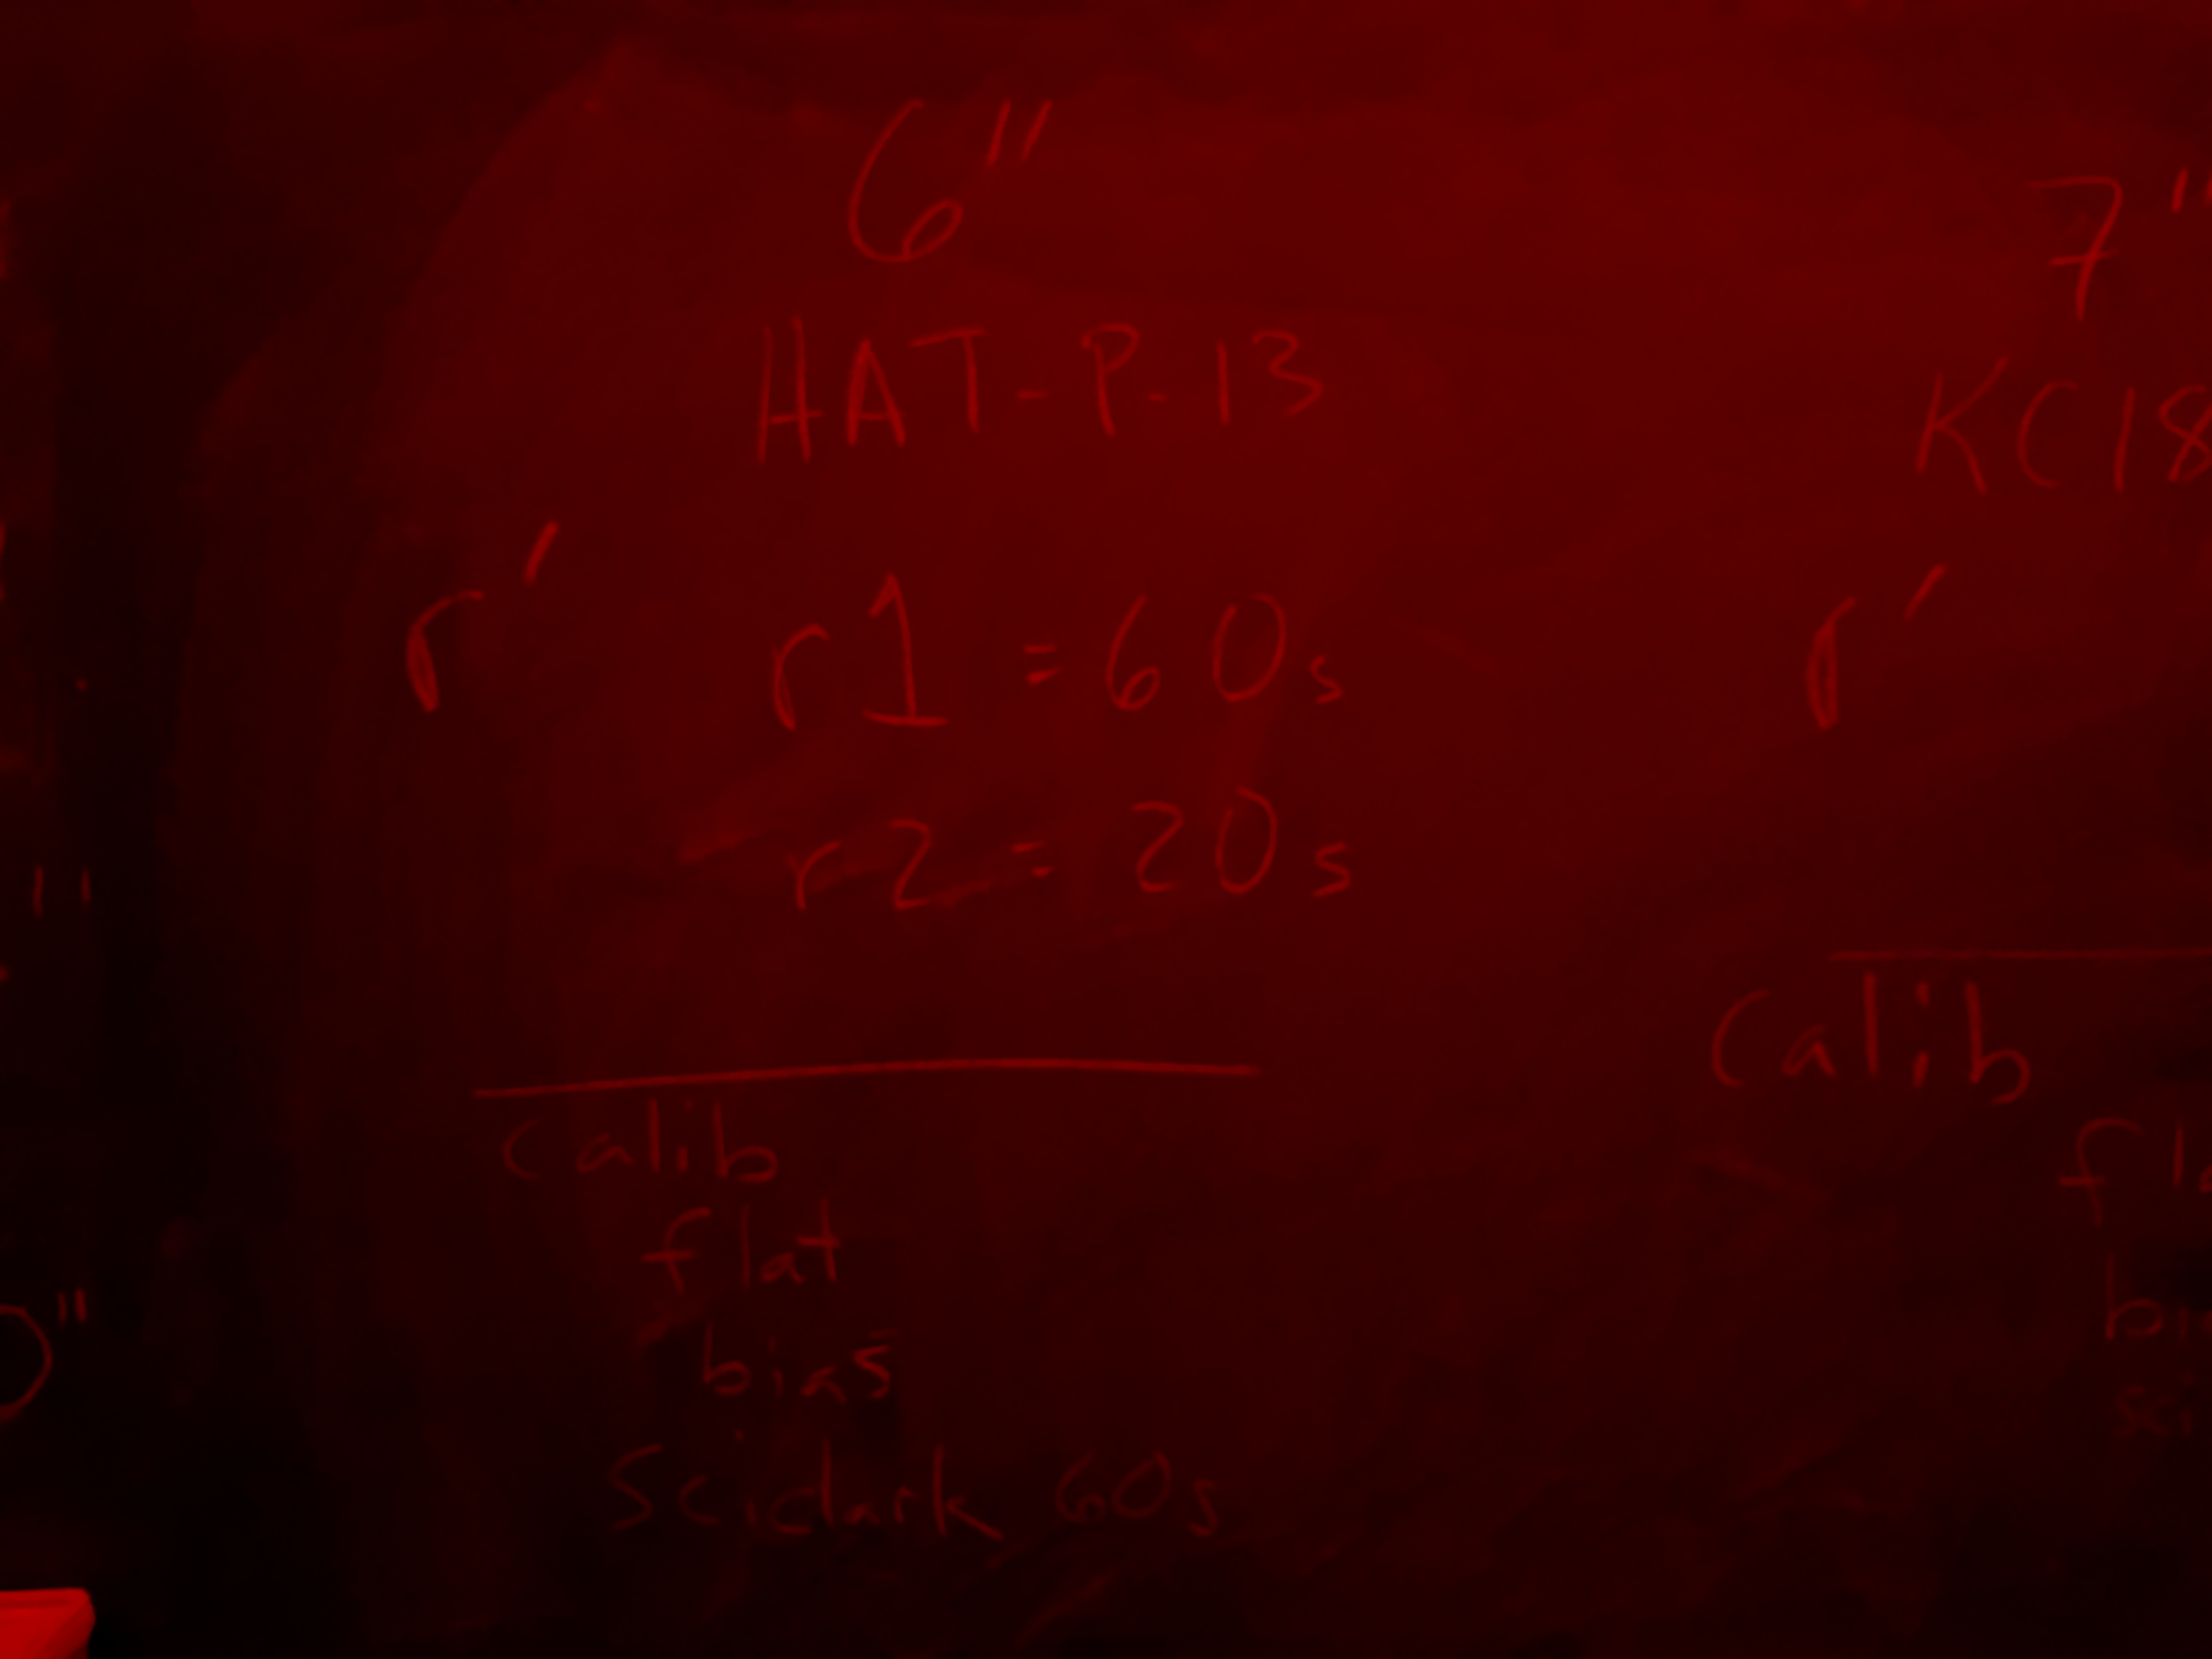 6"
HAT-P-13
r'
r1 = 60s
r2 = 20s
calib
flat
bias
Scidark 60s
7"
r'
Calib